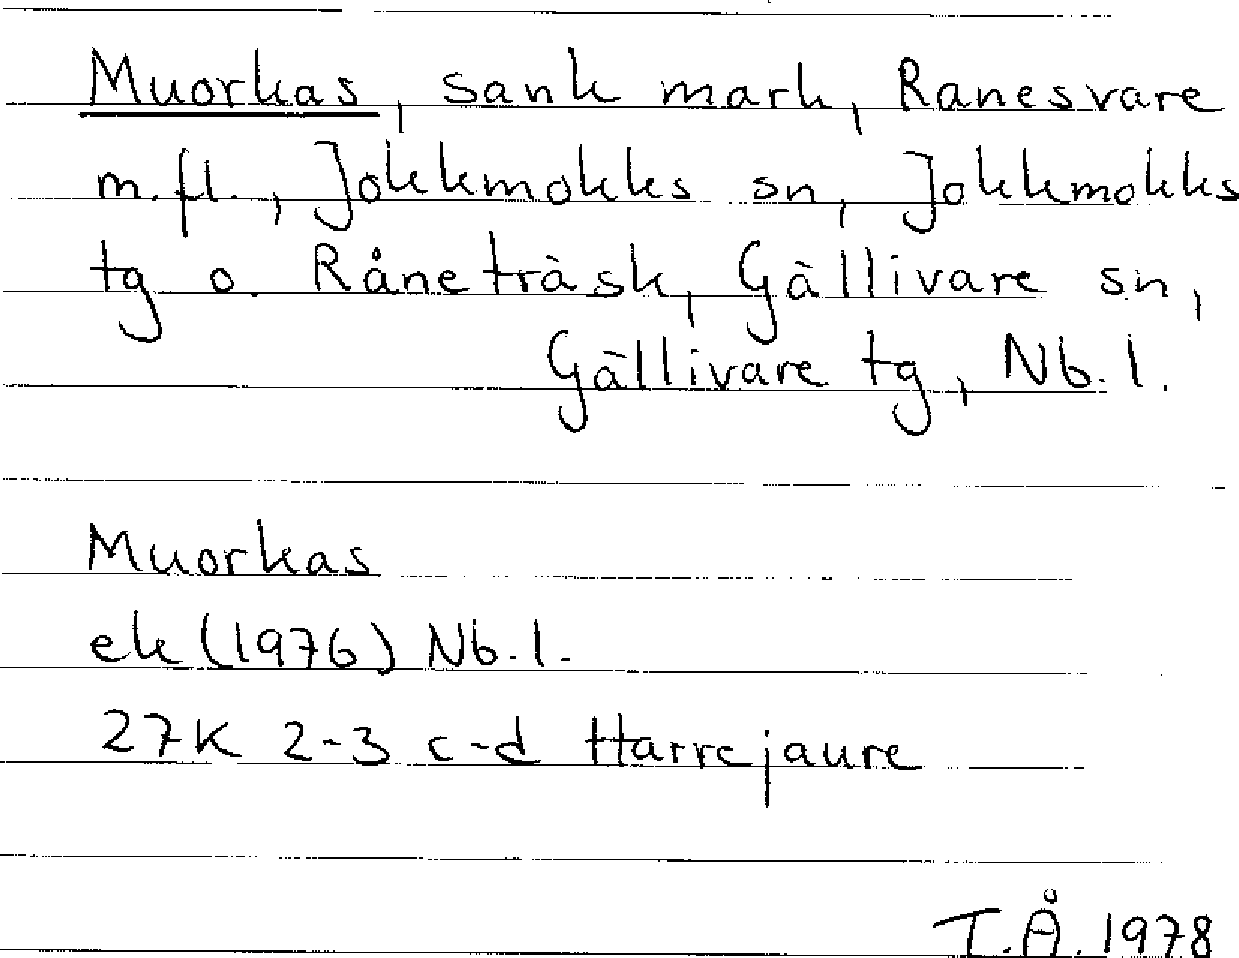 Muorkas, sank mark, Ranesvare
m.fl., Jokkmokks sn, Jokkmokks
tg o. Råneträsk, Gällivare sn,
Gällivare tg, Nb.l.
Muorkas
ek (1976) Nb.l.
27K 2-3 c-d Harrejaure
T.Å. 1978